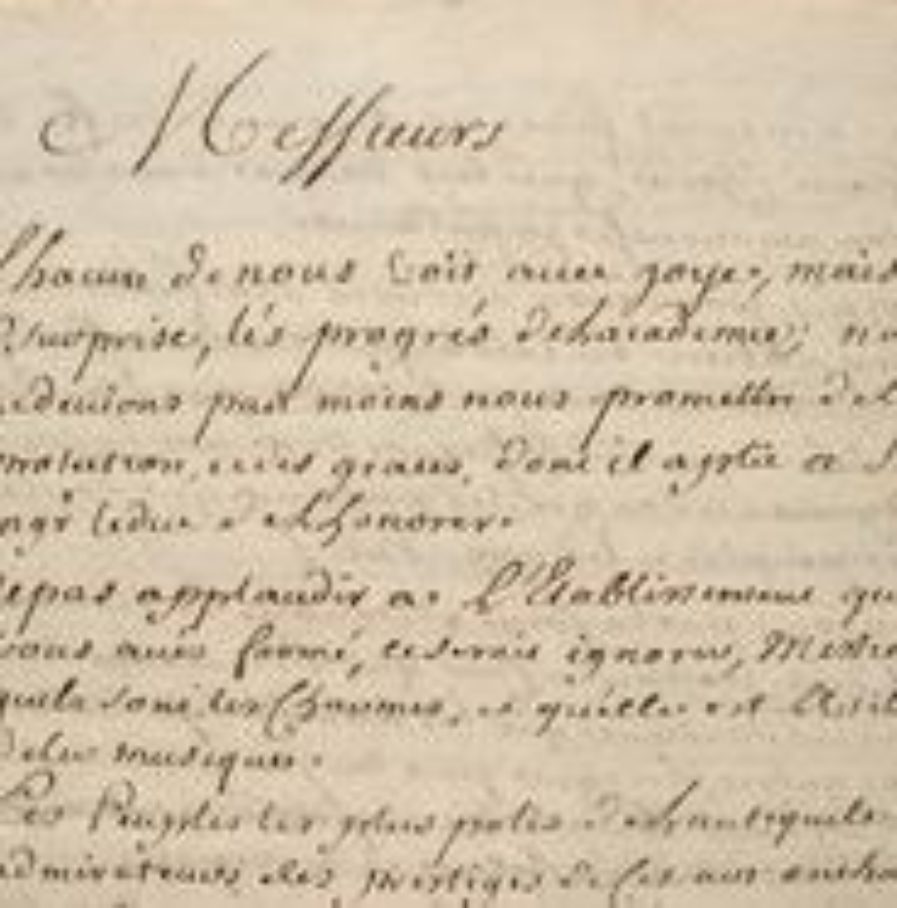 Messieurs
Chacun de nous Voit avec joye, mais
surprise, lés progrés del'académie; no
devions pas moins nous promettre del
protection, et des graces, dont il a plû a S
ngr le duc d'el'honorer.
Ne pas applaudir a l'Etablissement qu
vous aués formé, ce seroit ignorer, Messie
quels sont les Charmes, et quelle est l'utili
dela musique.
Les Peuples les plus polis del'antiquité
admirateurs des prestiges de cet art encha